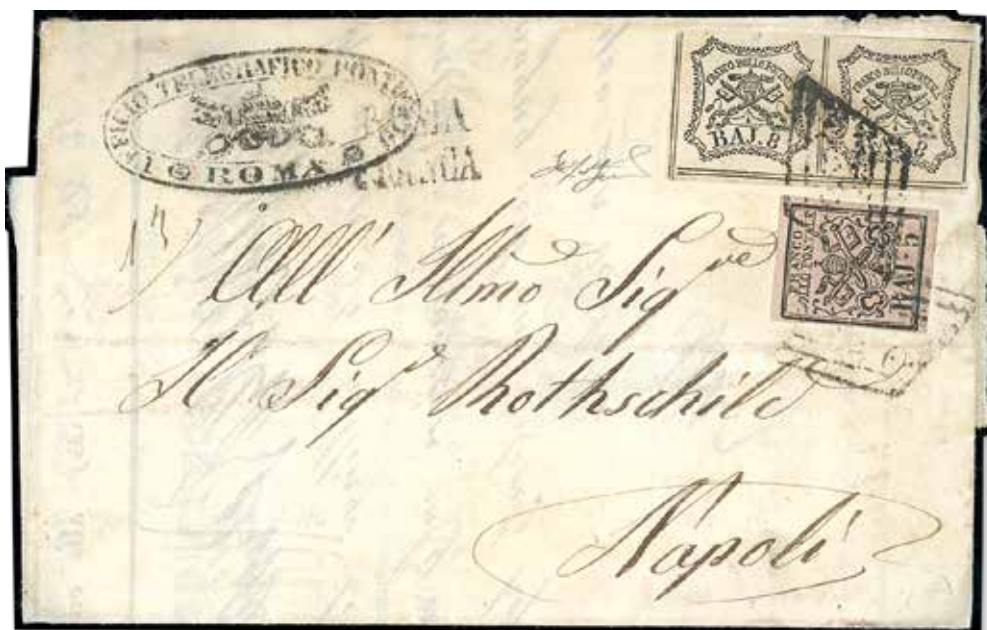 UFFICIO TELEGRAFICO PONTIFICIO
ROMA
ROMA
FRANCA
FRANCO BOLLO POSTALE
BAJ. 8
FRANCO BOLLO POSTALE
8
FRANCO
BOLLO POSTALE
BAJ. 5
All' Illmo Sig.re
Il Sig.r Rothschild
Napoli